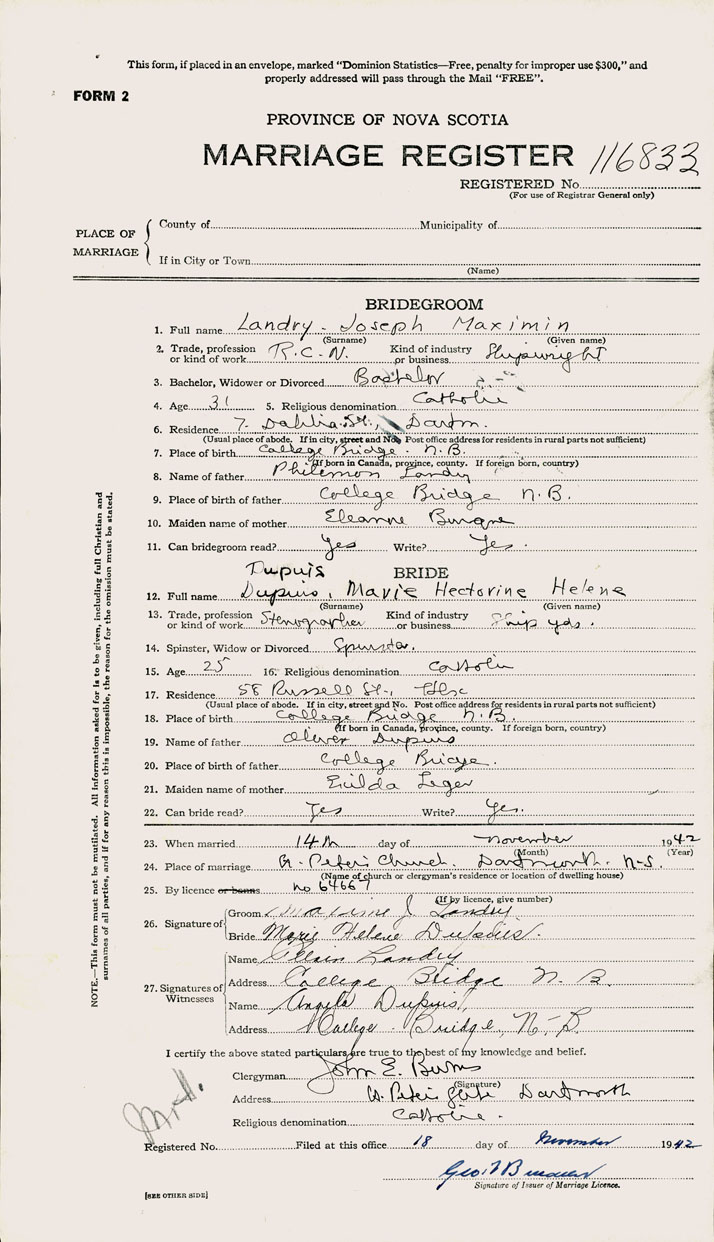 This form, if placed in an envelope, marked “Dominion Statistics—Free, penalty for improper use $300,” and
properly addressed will pass through the Mail “FREE”.
FORM 2
PROVINCE OF NOVA SCOTIA
MARRIAGE REGISTER 116833
REGISTERED No.
(For use of Registrar General only)
PLACE OF MARRIAGE
County of Municipality of
If in City or Town
(Name)
BRIDEGROOM
1. Full name Landry - Joseph Maximin
(Surname) (Given name)
2. Trade, profession or kind of work R.C.N. Kind of industry or business Shipwright
3. Bachelor, Widower or Divorced Bachelor
4. Age 31 5. Religious denomination Catholic
6. Residence 7. Dahlia St., Dartm.
(Usual place of abode. If in city, street and No. Post office address for residents in rural parts not sufficient)
7. Place of birth College Bridge. N.B.
(If born in Canada, province, county. If foreign born, country)
8. Name of father Philemon Landry
9. Place of birth of father College Bridge N.B.
10. Maiden name of mother Eleanne
11. Can bridegroom read? Yes Write? Yes.
Dupuis
BRIDE
12. Full name Dupuis, Marie Hectorine Helene
(Surname) (Given name)
13. Trade, profession or kind of work Stenographer Kind of industry or business Ship yds.
14. Spinster, Widow or Divorced Spinster.
15. Age 25 16. Religious denomination Catholic
17. Residence 58 Russell St., Hfx
(Usual place of abode. If in city, street and No. Post office address for residents in rural parts not sufficient)
18. Place of birth College Bridge N.B.
(If born in Canada, province, county. If foreign born, country)
19. Name of father Oliver Dupuis
20. Place of birth of father College Bridge.
21. Maiden name of mother Leger
22. Can bride read? Yes Write? Yes.
23. When married 14th day of November 1942
(Month) (Year)
24. Place of marriage St. Peter's Church. Dartmouth. N.S.
(Name of church or clergyman's residence or location of dwelling house)
25. By licence or banns no 64667
(If by licence, give number)
26. Signature of
Groom Maxime J Landry
Bride Marie Helene Dupuis.
27. Signatures of Witnesses
Name Landry
Address College Bridge N.B.
Name Angela Dupuis,
Address College Bridge, N.B.
I certify the above stated particulars are true to the best of my knowledge and belief.
Clergyman John E. Burns
(Signature)
Address St. Peter's Dartmouth
Religious denomination Catholic.
Registered No. Filed at this office 18 day of November 1942
Geo.
Signature of Issuer of Marriage Licence.
[SEE OTHER SIDE]
NOTE.—This form must not be mutilated. All information asked for is to be given, including full Christian and
surnames of all parties, and if for any reason this is impossible, the reason for the omission must be stated.